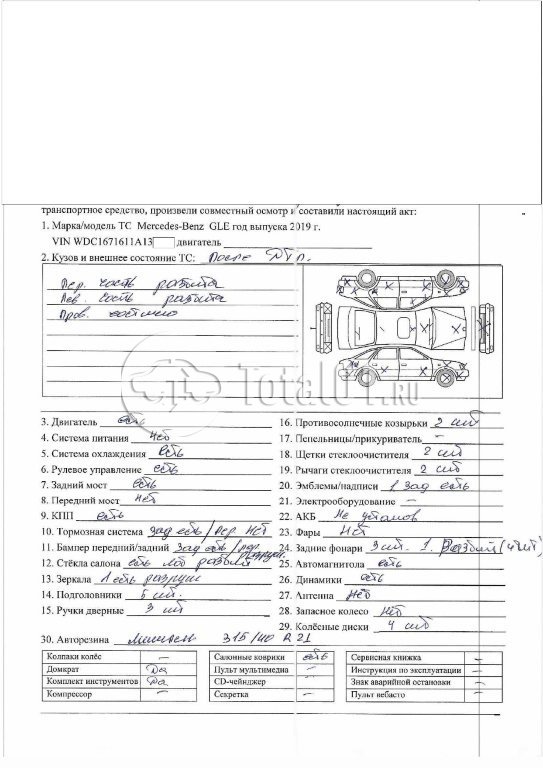 транспортное средство, произвели совместный осмотр и составили настоящий акт:
1. Марка/модель ТС Mercedes-Benz GLE год выпуска 2019 г.
VIN WDC1671611A13 двигатель
2. Кузов и внешнее состояние ТС: После ДТП.
Пер. часть разбита
Лев. часть разбита
Прав.
Total01.ru
3. Двигатель есть
4. Система питания нет
5. Система охлаждения есть
6. Рулевое управление есть
7. Задний мост есть
8. Передний мост нет
9. КПП есть
10. Тормозная система зад есть / пер. нет
11. Бампер передний/задний зад есть / пер.
12. Стёкла салона есть
13. Зеркала 1 есть
14. Подголовники 5 шт
15. Ручки дверные 3 шт
16. Противосолнечные козырьки 2 шт
17. Пепельницы/прикуриватель –
18. Щетки стеклоочистителя 2 шт
19. Рычаги стеклоочистителя 2 шт
20. Эмблемы/надписи 1 зад есть
21. Электрооборудование –
22. АКБ Не
23. Фары Нет
24. Задние фонари 3 шт. 1.
25. Автомагнитола есть
26. Динамики есть
27. Антенна Нет
28. Запасное колесо Нет
29. Колёсные диски 4 шт
30. Авторезина 315/40 R 21
Колпаки колёс –
Домкрат Да
Комплект инструментов Да
Компрессор –
Салонные коврики есть
Пульт мультимедиа –
CD-чейнджер –
Секретка –
Сервисная книжка –
Инструкция по эксплуатации –
Знак аварийной остановки –
Пульт вебасто –